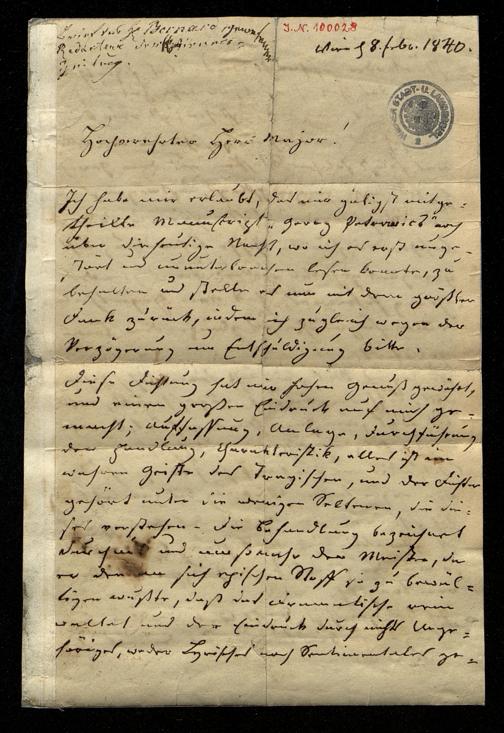 Brief des J. Bernard gewes.
Redakteur der Wiener-
Zeitung.
J.N. 100028
Wien d 8. Febr. 1840.
WIENER STADT- U. LANDES
Hochverehrter Herr Major!
Ich habe mir erlaubt, das mir gütigst mitge-
theilte Manuscript "Georg Petrowics" noch
über die heutige Nacht, wo ich es erst unge-
stört und ununterbrochen lesen konnte, zu
behalten und stelle es nun mit dem größten
Dank zurück, indem ich zugleich wegen der
Verzögerung um Entschuldigung bitte.
Diese Dichtung hat mir hohen Genuß gewährt,
und einen großen Eindruck auf mich ge-
macht; Auffassung, Anlage, Durchführung
der Handlung, Charakteristik, alles ist im
wahren Geiste des Tragischen, und der Dichter
gehört unter die wenigen Seltenen, die die-
ses verstehen. Die Behandlung bezeichnet
durchaus und den Meister, da
er den an sich epischen Stoff so zu bewäl-
tigen wußte, daß das dramatische rein
waltet und der Eindruck durch nichts Unge-
höriges, weder Lyrisches noch Sentimentales ge-